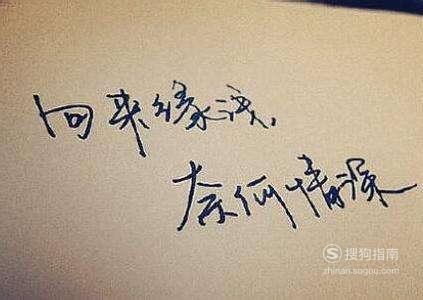 向来缘浅，
奈何情深
搜狗指南
zhinan.sogou.com